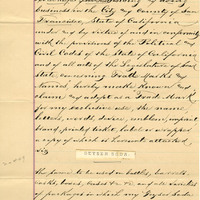 business in the City & County of San
Francisco, State of California
under & by virtue of and in conformity
with the provisions of the Political &
Civil Codes of the State of California
and of all acts of the Legislature of said
State concerning Trade Marks &
names, hereby make known &
claim & adopt as a Trade Mark
for my exclusive use, the name
letters, words, device, emblem, imprint
brand, printed ticket, label or wrapper
a copy of which is hereunto attached,
viz
The same to be used on bottles, barrels
casks, boxes, cases &c &c and all varieties
of packages in which my